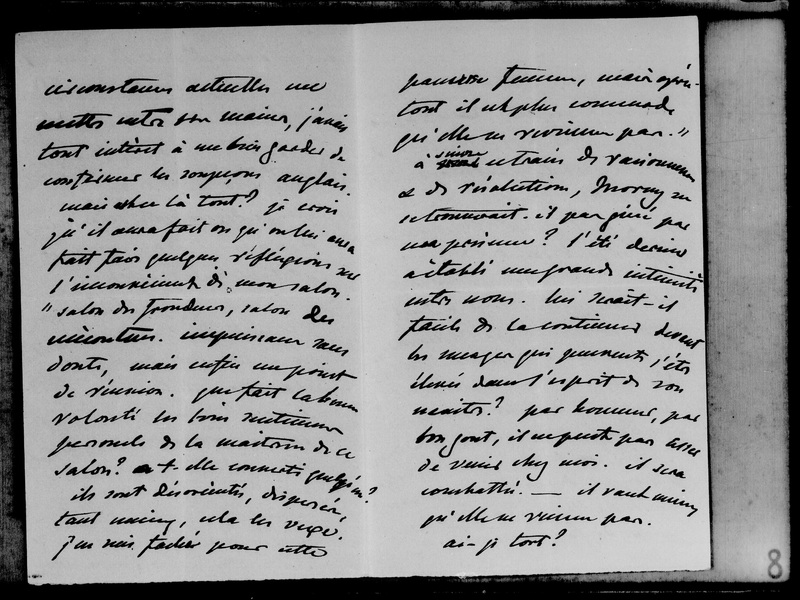 circonstances actuelles me
mettre entre ses mains, j'avais
tout intérêt à me bien garder de
confirmer les soupçons anglais.
mais est-ce là tout? je crois
qu'il aura fait ou qu'on lui aura
fait faire quelques réflexions sur
l'inconvénient de mon salon.
"salon des frondeurs, salon des
mécontents. impuissance sans
doute, mais enfin un point
de réunion. que fait la bonne
volonté les bons sentiments
personels de la maitresse de ce
salon? a-t-elle converti quelqu'un?
ils sont désorientés, dispersés,
tant mieux, cela les vexe.
j'en suis fachée pour cette
pauvre femme, mais après-
tout il est plus commode
qu'elle ne revienne pas."
à suivre ce train de raisonnement
& de résolutions, Morny ne
se trouverait-il pas gêné par
ma présence? l'été dernier
a établi une grande intimité
entre nous. lui serait-il
facile de la continuer devant
les
qui peuvent s'être
élevés dans l'esprit de son
maître? par honneur, par
bon gout, il ne peut pas cesser
de venir chez moi. il sera
combattu. — il vaut mieux
qu'elle ne vienne pas.
ai-je tort?
8